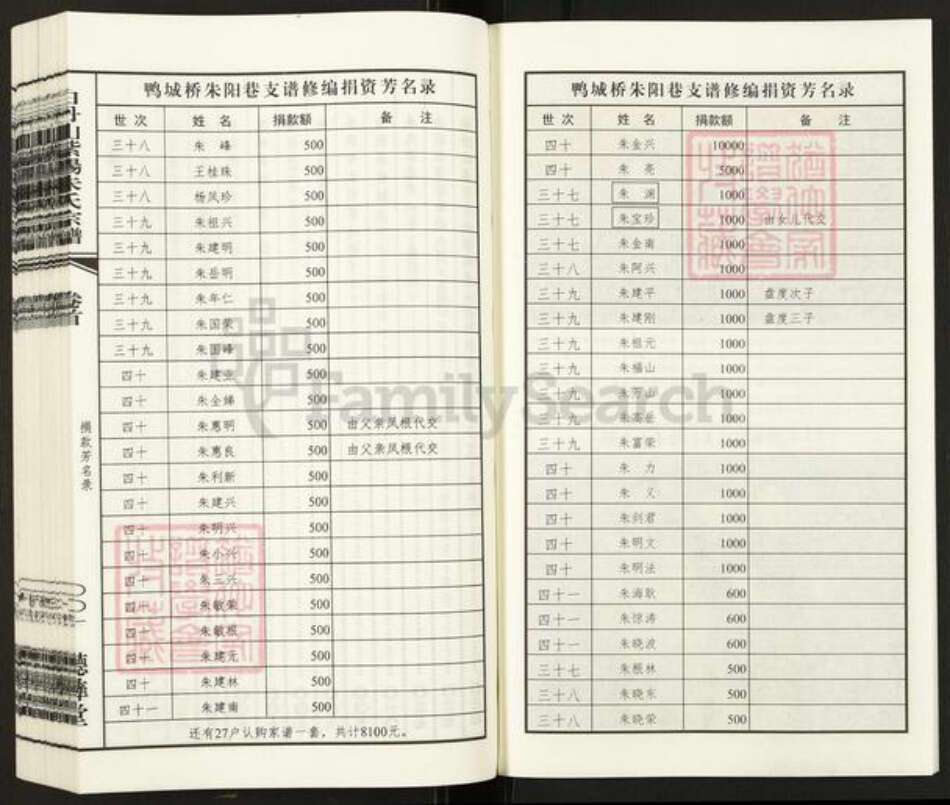 鸭城桥朱阳巷支谱修编捐资芳名录
世次 姓名 捐款额 备注
三十八 朱峰 500
三十八 王桂珠 500
三十八 杨凤珍 500
三十九 朱祖兴 500
三十九 朱建明 500
三十九 朱岳明 500
三十九 朱年仁 500
三十九 朱国荣 500
三十九 朱国峰 500
四十 朱建业 500
四十 朱全娣 500
四十 朱惠明 500 由父亲凤根代交
四十 朱惠良 500 由父亲凤根代交
四十 朱利新 500
四十 朱建兴 500
四十 朱明兴 500
四十 朱小兴 500
四十 朱三兴 500
四十 朱敏荣 500
四十 朱敏根 500
四十 朱建元 500
四十 朱建林 500
四十一 朱建南 500
还有27户认购家谱一套，共计8100元。
捐款芳名录
鸭城桥朱阳巷支谱修编捐资芳名录
世次 姓名 捐款额 备注
四十 朱金兴 10000
四十 朱亮 5000
三十七 朱渊 1000
三十七 朱宝珍 1000 由女儿代交
三十七 朱金南 1000
三十八 朱阿兴 1000
三十九 朱建平 1000 盘度次子
三十九 朱建刚 1000 盘度三子
三十九 朱祖元 1000
三十九 朱福山 1000
三十九 朱万山 1000
三十九 朱高岳 1000
三十九 朱富荣 1000
四十 朱力 1000
四十 朱义 1000
四十 朱剑君 1000
四十 朱明文 1000
四十 朱明法 1000
四十一 朱海耿 600
四十一 朱惊涛 600
四十一 朱晓波 600
三十七 朱根林 500
三十八 朱晓东 500
三十八 朱晓荣 500
FamilySearch